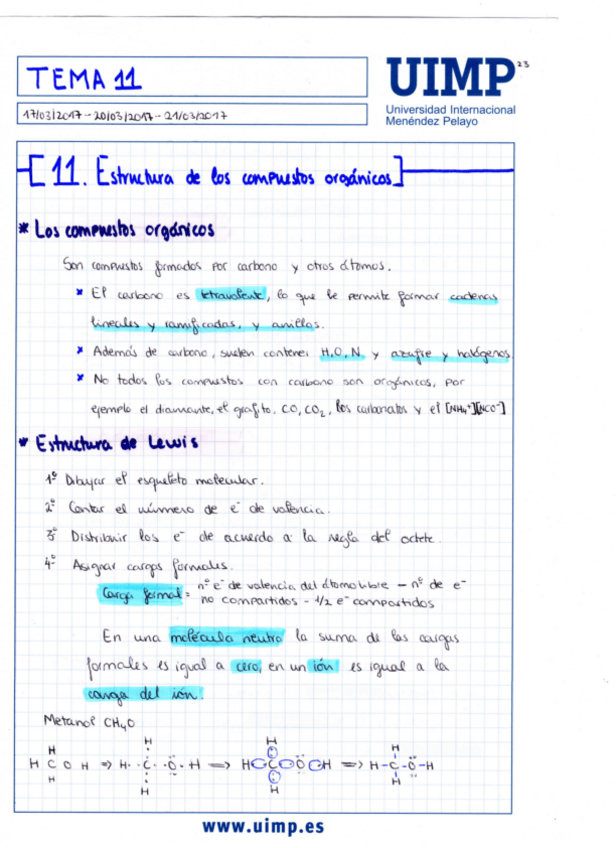 TEMA 11
UIMP 23
17/03/2017 - 20/03/2017 - 21/03/2017
Universidad Internacional
Menéndez Pelayo
[11. Estructura de los compuestos orgánicos]
* Los compuestos orgánicos
Son compuestos formados por carbono y otros átomos.
* El carbono es tetravalente, lo que le permite formar cadenas
lineales y ramificadas, y anillos.
* Además de carbono, suelen contener H, O, N y azufre y halógenos
* No todos los compuestos con carbono son orgánicos, por
ejemplo el diamante, el grafito, CO, CO₂, los carbonatos y el [NH₄⁺][NCO⁻]
* Estructura de Lewis
1º Dibujar el esqueleto molecular.
2º Contar el número de e⁻ de valencia.
3º Distribuir los e⁻ de acuerdo a la regla del octete.
4º Asignar cargas formales.
Carga formal = nº e⁻ de valencia del átomo libre - nº de e⁻
no compartidos - 1/2 e⁻ compartidos
En una molécula neutra la suma de las cargas
formales es igual a cero, en un ión es igual a la
carga del ión.
Metanol CH₄O
H H H H
H C O H ⇒ H· ·C· ·O· H ⇒ H C O H ⇒ H-C-O-H
H H H H
www.uimp.es